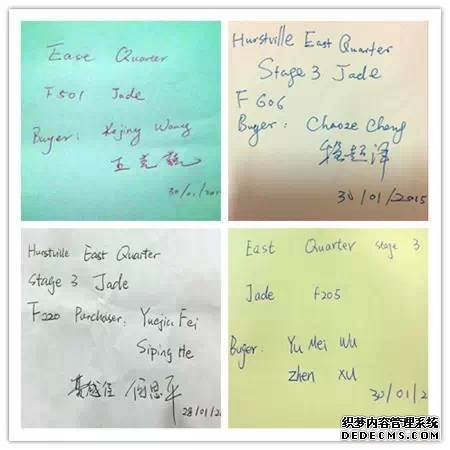 East Quarter
F501 Jade
Buyer: Kejing Wang
30/01/201
Hurstville East Quarter
Stage 3 Jade
F 606
Buyer: Chaoze Cheng
超泽
30/01/2015
Hurstville East Quarter
Stage 3 Jade
F220 Purchaser: Yuejia Fei
Siping He
何思平
28/01/20
East Quarter stage 3
Jade F205
Buyer: Yu Mei Wu
zhen xu
30/01/2
织梦内容管理系统
DEDECMS.COM